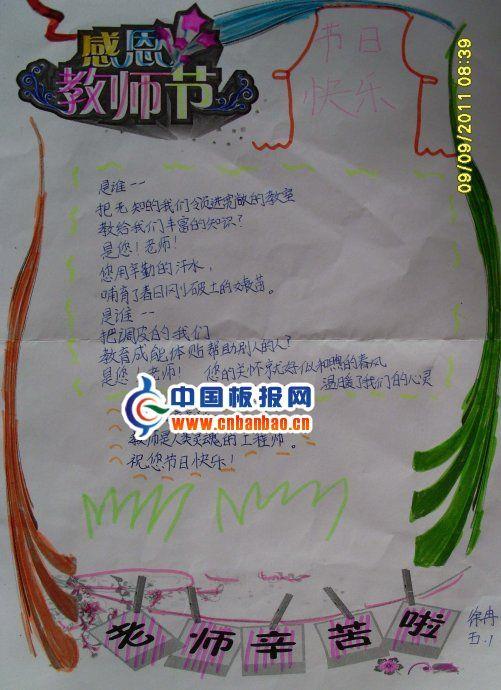 感恩
教师节
节日
快乐
09/09/2011 08:39
是谁——
把无知的我们领进宽敞的教室
教给我们丰富的知识？
是您！老师！
您用辛勤的汗水，
哺育了春日刚刚破土的嫩苗。
是谁——
把调皮的我们
教育成能体贴帮助别人的人？
是您！老师！ 您的关怀就好似和煦的春风
温暖了我们的心灵
中国板报网
www.cnbanbao.cn
教师是人类灵魂的工程师。
祝您节日快乐！
老师辛苦啦
徐冉
五.1